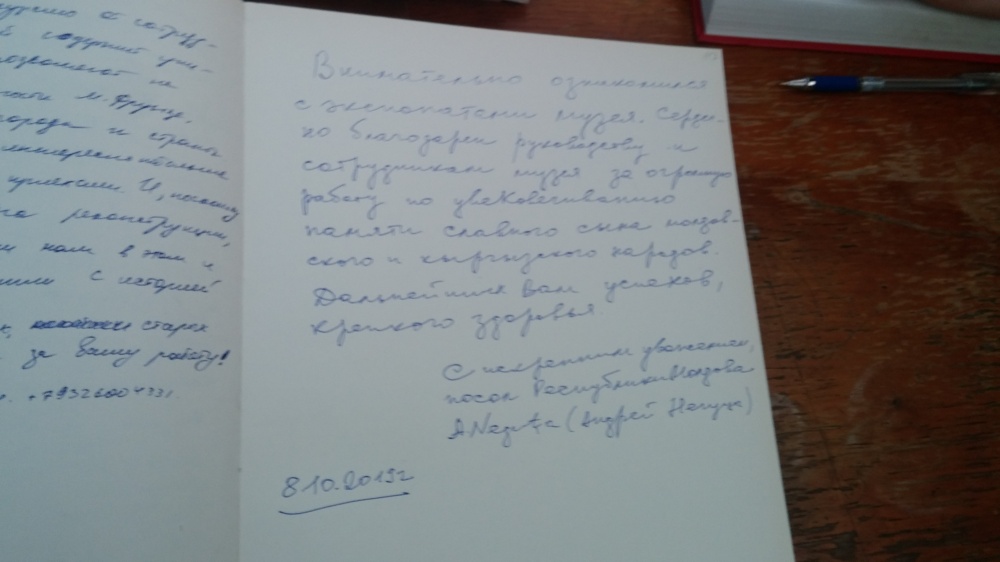 сотруд-
не
М. Фрунзе,
города и страны
И, поскольку
реконструкции,
нам в этом и
с историей
старех
за вашу работу!
+79326004331
Внимательно ознакомился
с экспонатами музея. Сердеч-
но благодарен руководству и
сотрудникам музея за огромную
работу по увековечиванию
памяти славного сына молдов-
ского и кыргызского народов.
Дальнейших Вам успехов,
крепкого здоровья.
С искренним уважением,
посол Республики Молдова
ANeguța (Андрей Негуца)
8.10.2019г